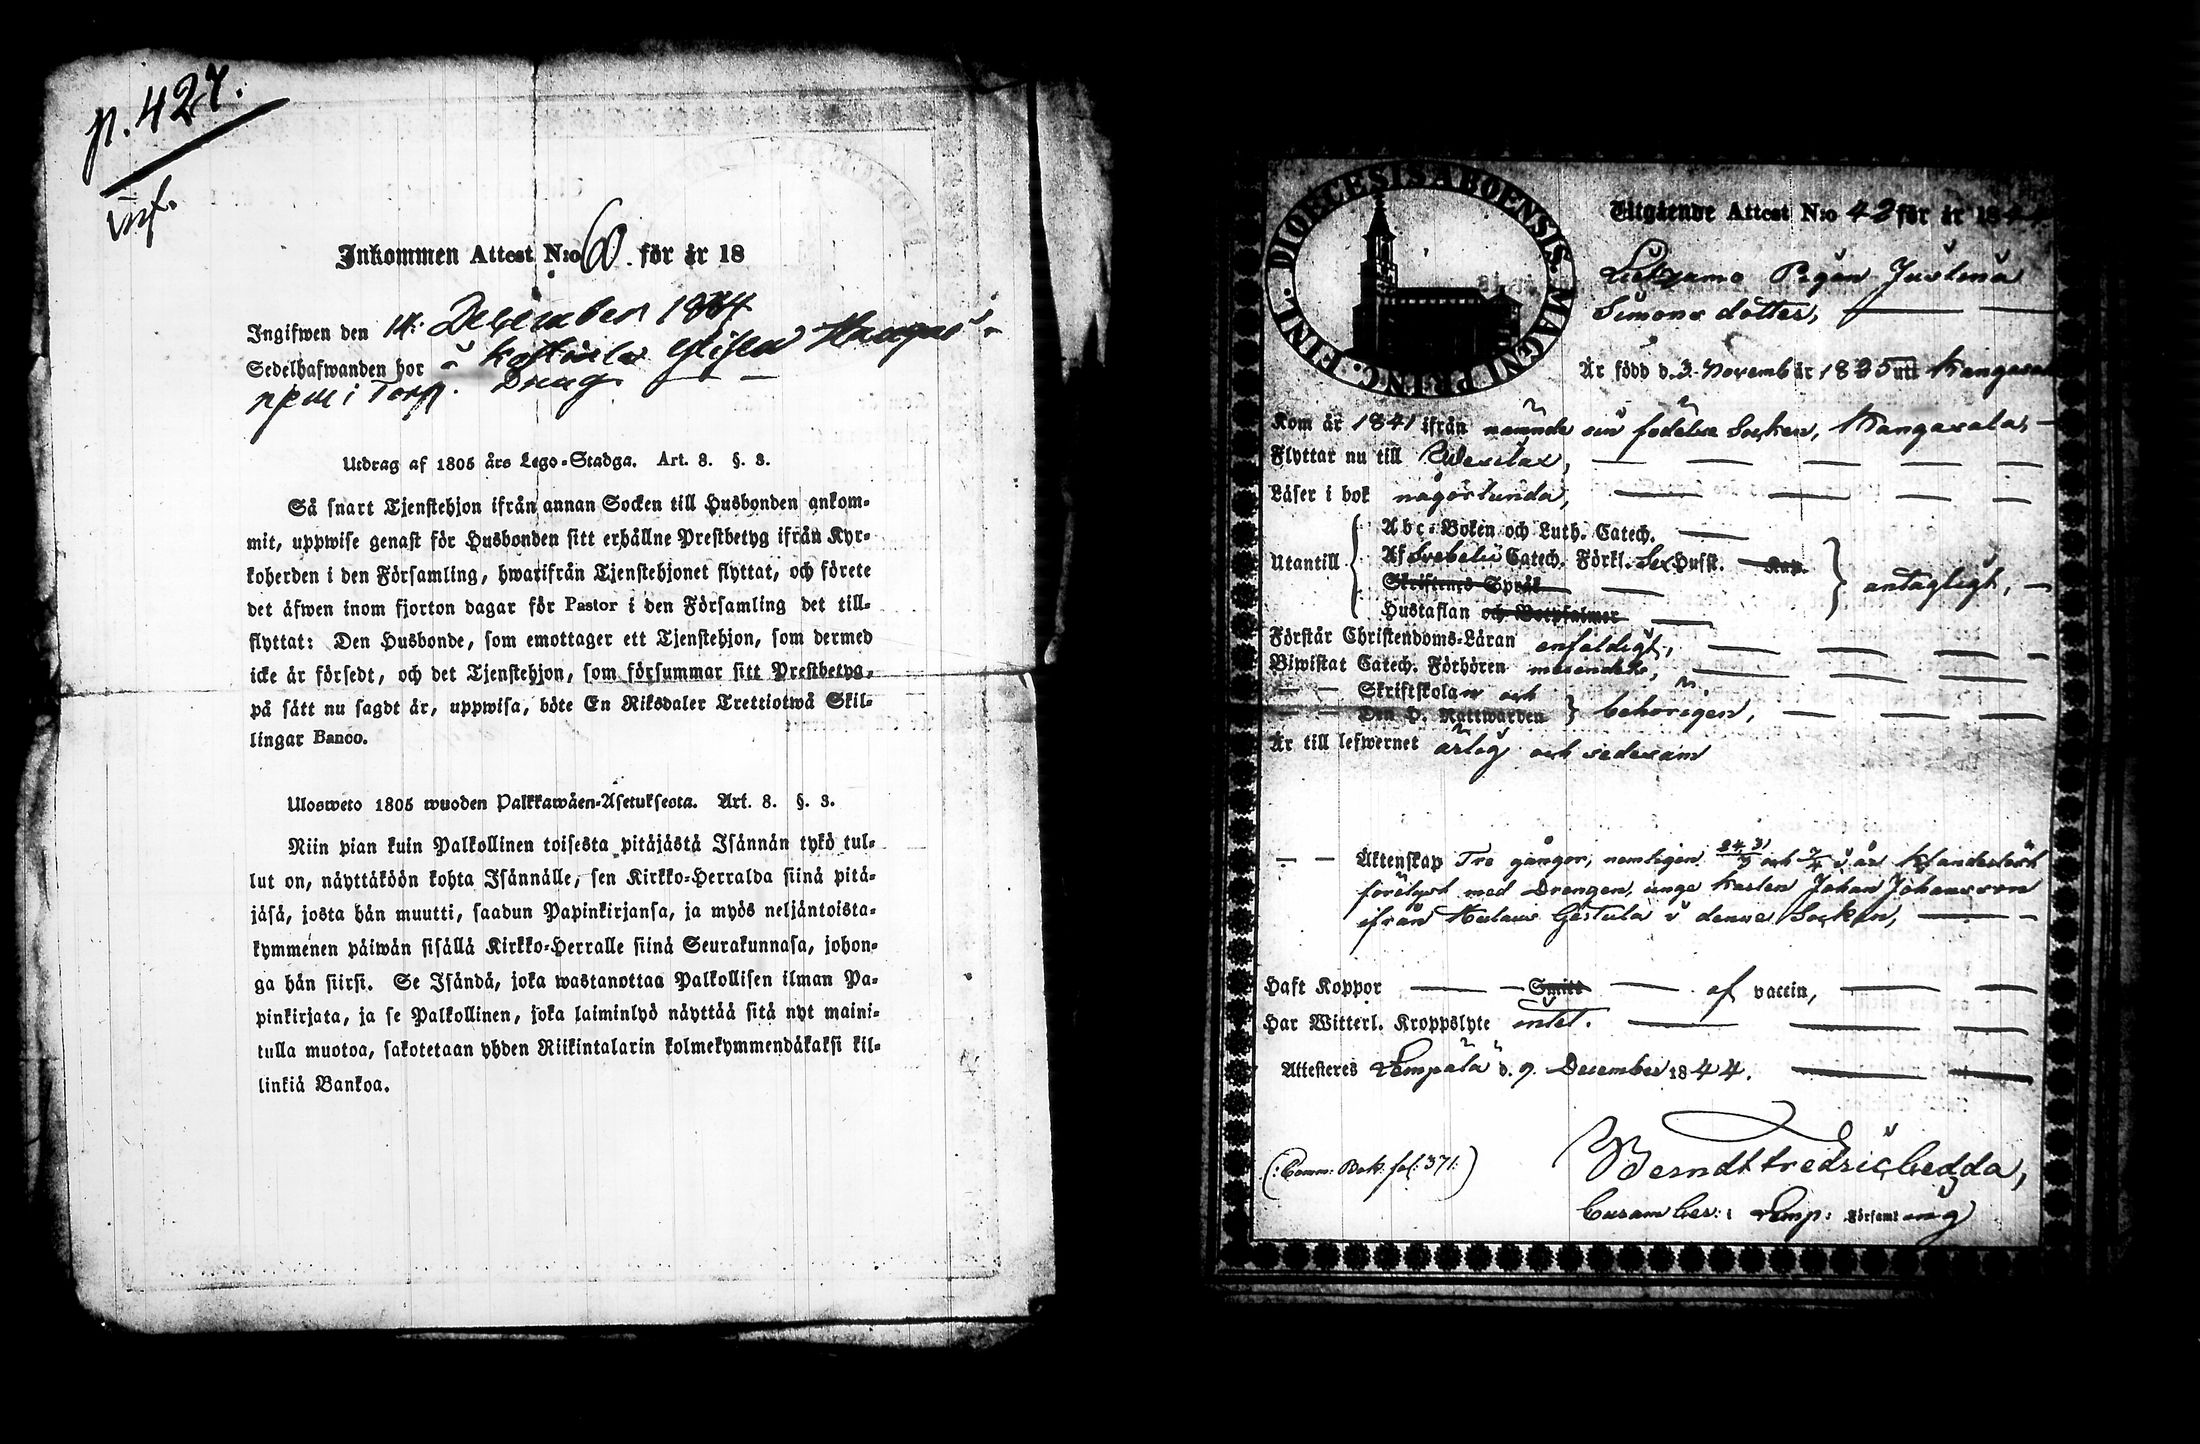 p. 427.
inf.
Inkommen Attest N:o 60. för år 18
Ingifwen den 14: December 1844
Sedelhafwanden bor å
i Torp. Dräng
Utdrag af 1805 års Lego-Stadga. Art. 8. §. 3.
Så snart Tjenstehjon ifrån annan Socken till Husbonden ankom-
mit, uppwise genast för Husbonden sitt erhållne Prestbetyg ifrån Kyr-
koherden i den Församling, hwarifrån Tjenstehjonet flyttat, och förete
det äfwen inom fjorton dagar för Pastor i den Församling det till-
flyttat: Den Husbonde, som emottager ett Tjenstehjon, som dermed
icke är försedt, och det Tjenstehjon, som försummar sitt Prestbetyg,
på sätt nu sagdt är, uppwisa, böte En Riksdaler Trettiotwå Skil-
lingar Banco.
Ulosweto 1805 wuoden Palkkawäen-Asetuksesta. Art. 8. §. 3.
Niin pian kuin Palkollinen toisesta pitäjästä Isännän tykö tul-
lut on, näyttäköön kohta Isännälle, sen Kirkko-Herralda siinä pitä-
jäsä, josta hän muutti, saadun Papinkirjansa, ja myös neljäntoista-
kymmenen päiwän sisällä Kirkko-Herralle siinä Seurakunnasa, johon-
ga hän siirsi. Se Isändä, joka wastanottaa Palkollisen ilman Pa-
pinkirjata, ja se Palkollinen, joka laiminlyö näyttää sitä nyt maini-
tulla muotoa, sakotetaan yhden Riikintalarin kolmekymmendäkaksi kil-
linkiä Bankoa.
DIOECESIS ABOENSIS. MAGNI PRINC. FINL.
Utgående Attest N:o 42 för år 1844
Pigan Justina
Simons dotter,
Är född d. 3. Novemb år 1825 uti Kangasala
Kom år 1841 ifrån nämnde sin födelse Socken, Kangasala,
Flyttar nu till Wesilax,
Läser i bok någorlunda,
Utantill Abc-Boken och Luth. Catech.
Af Svebelii Catech. Förkl. Sex Hufst. Kap.
Skriftenes Språk
Hustaflan och Botpsalmer
antagligt,
Förstår Christendoms-Läran enfaldigt,
Biwistat Catech. Förhören
Skriftskolan och
Den H. Nattwarden behörigen,
Är till lefwernet ärlig och sedesam
Äktenskap Tre gånger, nemligen 24, 31/3 och 7/4 i år
förelyst med Drengen, unge Karlen Johan Johansson
ifrån Gästula i denne Socken,
Haft Koppor Smitt af vaccin,
Har Witterl. Kroppslyte intet.
Attesteres Lempälä d. 9. December 1844.
(:Comm: Bok. fol: 371:)
Berndt Fredric Gedda,
i Lemp: Församling